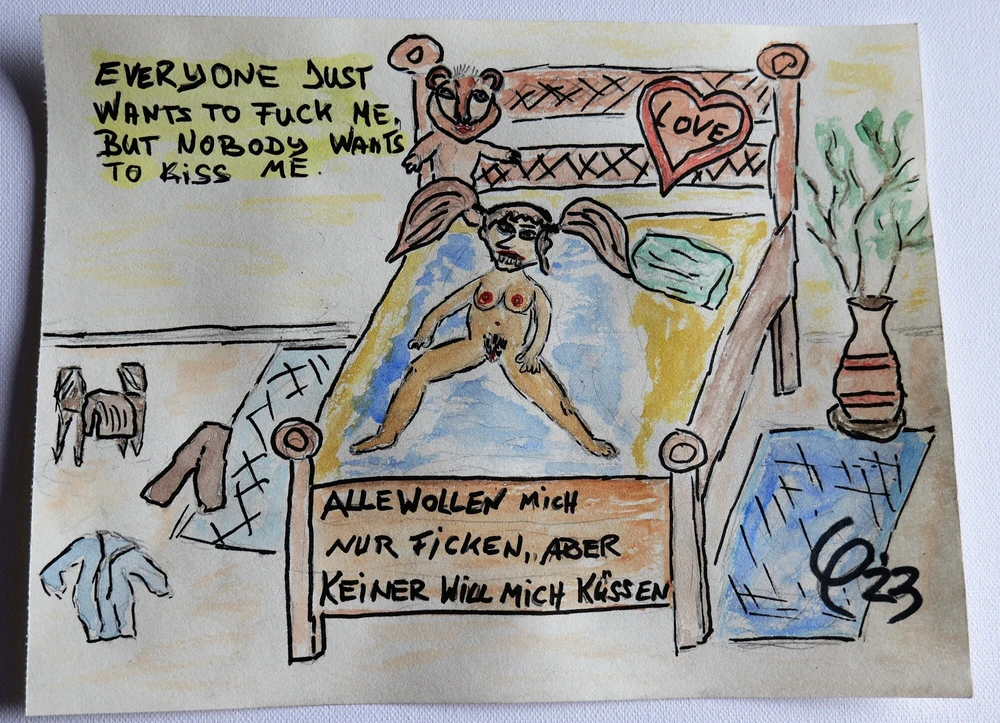 EVERYONE JUST
WANTS TO FUCK ME,
BUT NOBODY WANTS
TO KISS ME.
LOVE
ALLE WOLLEN MICH
NUR FICKEN, ABER
KEINER WILL MICH KÜSSEN
23